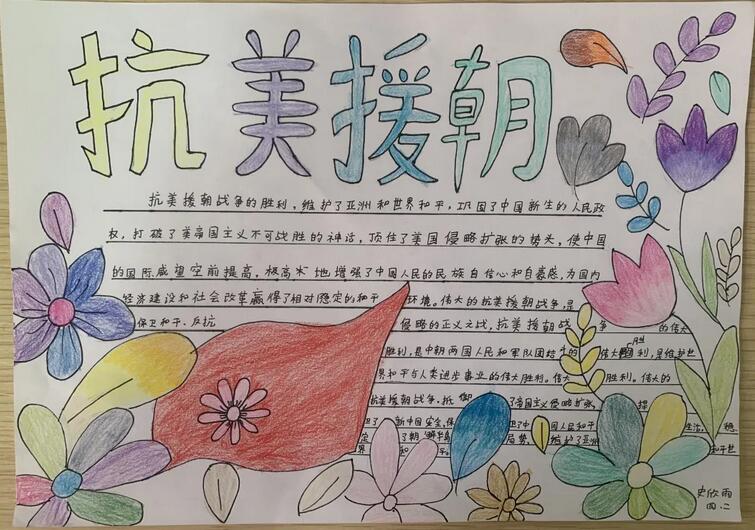 抗美援朝
抗美援朝战争的胜利，维护了亚洲和世界和平，巩固了中国新生的人民政
权，打破了美帝国主义不可战胜的神话，顶住了美国侵略扩张的势头，使中国
的国际威望空前提高，极高大地增强了中国人民的民族自信心和自豪感，为国内
经济建设和社会改革赢得了相对稳定的和平环境。伟大的抗美援朝战争，是
保卫和平、反抗侵略的正义之战，抗美援朝战争的伟大
胜利，是中朝两国人民和军队团结的伟大胜利，是维护世
界和平与人类进步事业的伟大胜利。伟大胜利。伟大的
抗美援朝战争，抵御了帝国主义侵略扩张，
卫了新中国安全，保卫了中国人民和平生活，稳
定了朝鲜半岛局势，维护了亚洲和平世
界和平。
史欣雨
四.二